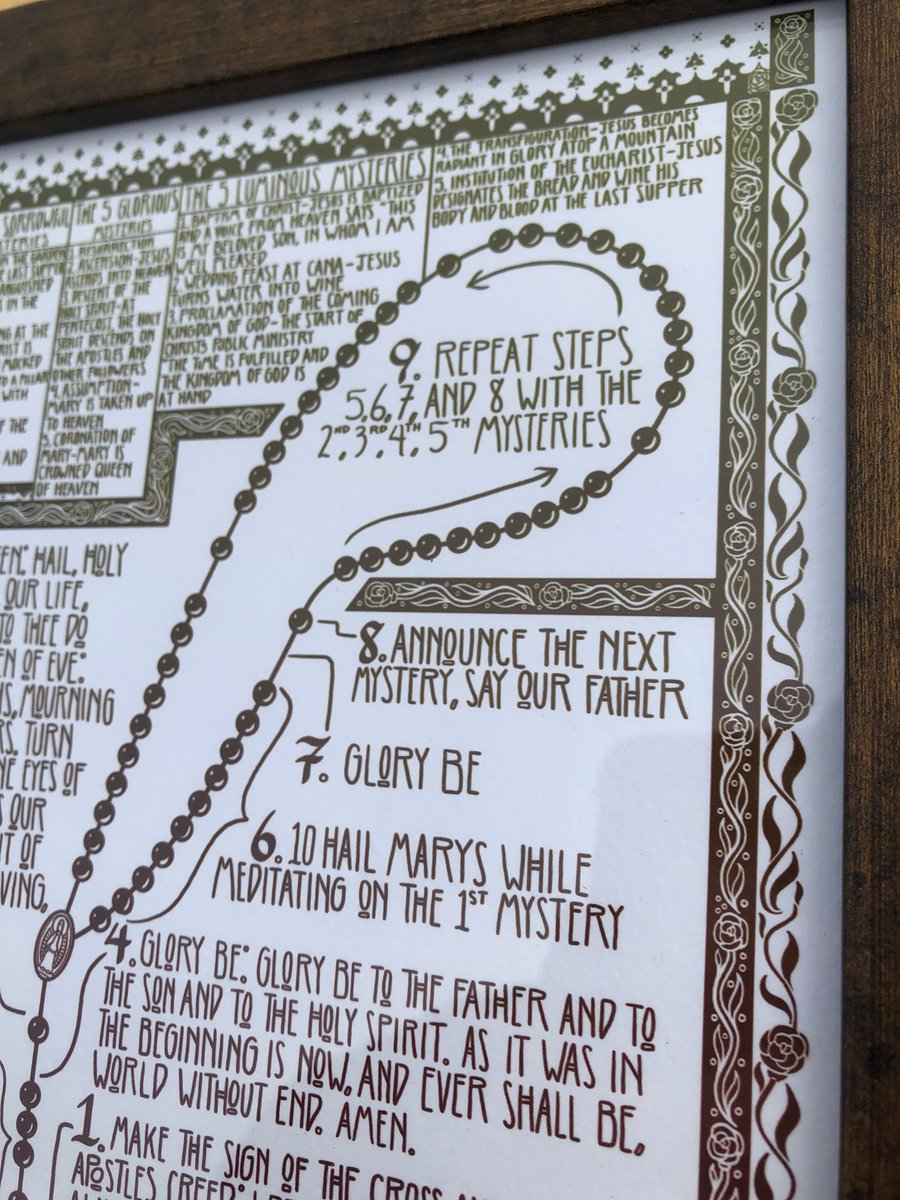 SORROWFUL
MYSTERIES
AND
THE 5 GLORIOUS
MYSTERIES
1. RESURRECTION
2. ASCENSION-JESUS
ASCENDS INTO HEAVEN
3. DESCENT OF THE
HOLY SPIRIT-AT
PENTECOST, THE HOLY
SPIRIT DESCENDS ON
THE APOSTLES AND
OTHER FOLLOWERS
4. ASSUMPTION-
MARY IS TAKEN UP
TO HEAVEN
5. CORONATION OF
MARY-MARY IS
CROWNED QUEEN
OF HEAVEN
THE 5 LUMINOUS MYSTERIES
1. BAPTISM OF CHRIST-JESUS IS BAPTIZED
AND A VOICE FROM HEAVEN SAYS, THIS
IS MY BELOVED SON, IN WHOM I AM
WELL PLEASED
2. WEDDING FEAST AT CANA-JESUS
TURNS WATER INTO WINE
3. PROCLAMATION OF THE COMING
KINGDOM OF GOD-THE START OF
CHRISTS PUBLIC MINISTRY
THE TIME IS FULFILLED AND
THE KINGDOM OF GOD IS
AT HAND
4. THE TRANSFIGURATION-JESUS BECOMES
RADIANT IN GLORY ATOP A MOUNTAIN
5. INSTITUTION OF THE EUCHARIST-JESUS
DESIGNATES THE BREAD AND WINE HIS
BODY AND BLOOD AT THE LAST SUPPER
9. REPEAT STEPS
5,6,7, AND 8 WITH THE
2ND, 3RD, 4TH, 5TH MYSTERIES
HAIL, HOLY
OUR LIFE,
TO THEE DO
OF EVE:
MOURNING
TURN
EYES OF
OUR
OF
8. ANNOUNCE THE NEXT
MYSTERY, SAY OUR FATHER
7. GLORY BE
6. 10 HAIL MARYS WHILE
MEDITATING ON THE 1ST MYSTERY
4. GLORY BE: GLORY BE TO THE FATHER AND TO
THE SON AND TO THE HOLY SPIRIT. AS IT WAS IN
THE BEGINNING IS NOW, AND EVER SHALL BE,
WORLD WITHOUT END. AMEN.
1. MAKE THE SIGN OF THE CROSS
APOSTLES CREED: